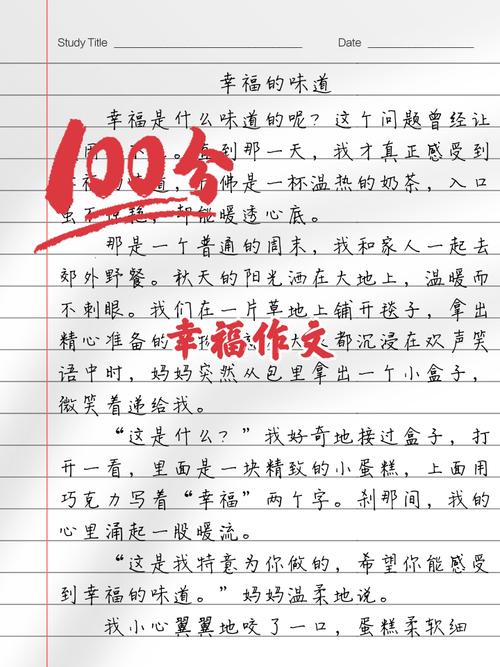 Study Title
Date
幸福的味道
幸福是什么味道的呢？这个问题曾经让
100分
。直到那一天，我才真正感受到
的味道，仿佛是一杯温热的奶茶，入口
虽不惊艳，却能暖透心底。
那是一个普通的周末，我和家人一起去
郊外野餐。秋天的阳光洒在大地上，温暖而
不刺眼。我们在一片草地上铺开毯子，拿出
精心准备的
幸福作文
都沉浸在欢声笑
语中时，妈妈突然从包里拿出一个小盒子，
微笑着递给我。
“这是什么？”我好奇地接过盒子，打
开一看，里面是一块精致的小蛋糕，上面用
巧克力写着“幸福”两个字。刹那间，我的
心里涌起一股暖流。
“这是我特意为你做的，希望你能感受
到幸福的味道。”妈妈温柔地说。
我小心翼翼地咬了一口，蛋糕柔软细